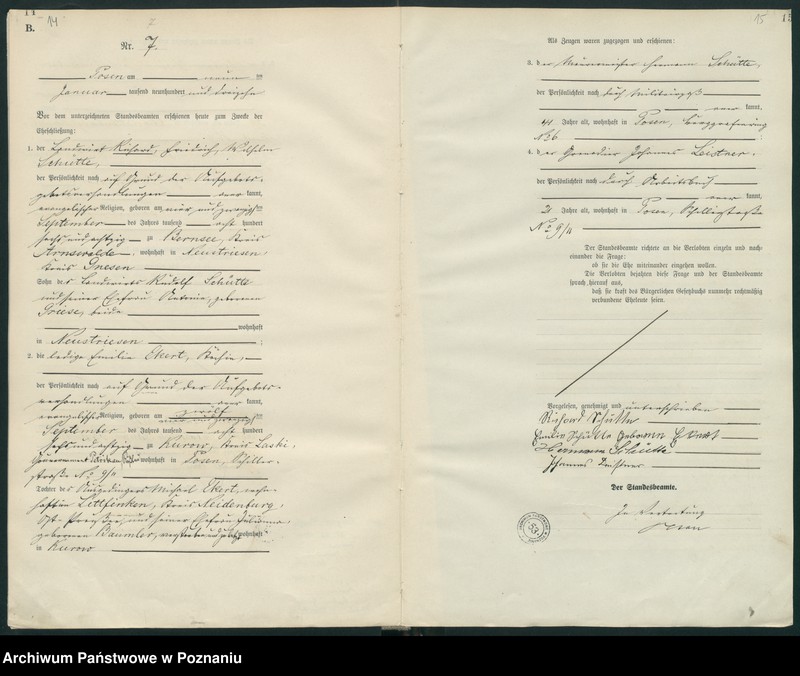 14
B.
Nr. 7.
Posen am neun ten
Januar tausend neunhundert und dreizehn
Vor dem unterzeichneten Standesbeamten erschienen heute zum Zwecke der
Eheschließung:
1. der Landwirt Richard, Friedrich, Wilhelm
Schütte,
der Persönlichkeit nach auf Grund der Aufgebots-
kannt,
evangelischer Religion, geboren am vier und zwanzigsten
September des Jahres tausend acht hundert
sechs und achtzig zu Bernsee, Kreis
Arnswalde, wohnhaft in Neustriesen
Kreis Gnesen
Sohn des Landwirts Rudolf Schütte
und seiner Ehefrau Antonie, geborenen
Griese, beide
wohnhaft
in Neustriesen ;
2. die ledige Emilie Ekert, Köchin,
der Persönlichkeit nach auf Grund der Aufgebots-
verhandlungen kannt,
evangelischer Religion, geboren am zwölf ten
September des Jahres tausend acht hundert
sechs und achtzig zu Kurow, Kreis Laski
wohnhaft in Posen, Schiller-
straße No 9/a
Tochter des Michael Ekert, wohn-
haft in Littfinken, Kreis Neidenburg,
Ost-Preußen, und seiner Ehefrau
geborenen Baumler, wohnhaft
in Kurow
15
Als Zeugen waren zugezogen und erschienen:
3. der Hermann Schütte,
der Persönlichkeit nach durch Militärpaß
kannt,
41 Jahre alt, wohnhaft in Posen,
No 6 ;
4. der Grenadier Johannes Leistner,
der Persönlichkeit nach durch Arbeitsbuch
kannt,
21 Jahre alt, wohnhaft in Posen, Schillerstraße
No 9/a
Der Standesbeamte richtete an die Verlobten einzeln und nach-
einander die Frage:
ob sie die Ehe miteinander eingehen wollen.
Die Verlobten bejahten diese Frage und der Standesbeamte
sprach hierauf aus,
daß sie kraft des Bürgerlichen Gesetzbuchs nunmehr rechtmäßig
verbundene Eheleute seien.
Vorgelesen, genehmigt und unterschrieben
Richard Schütte
Emilie Schütte geborene Ekert
Hermann Schütte
Johannes Leistner
Der Standesbeamte.
In Vertretung
Archiwum Państwowe w Poznaniu